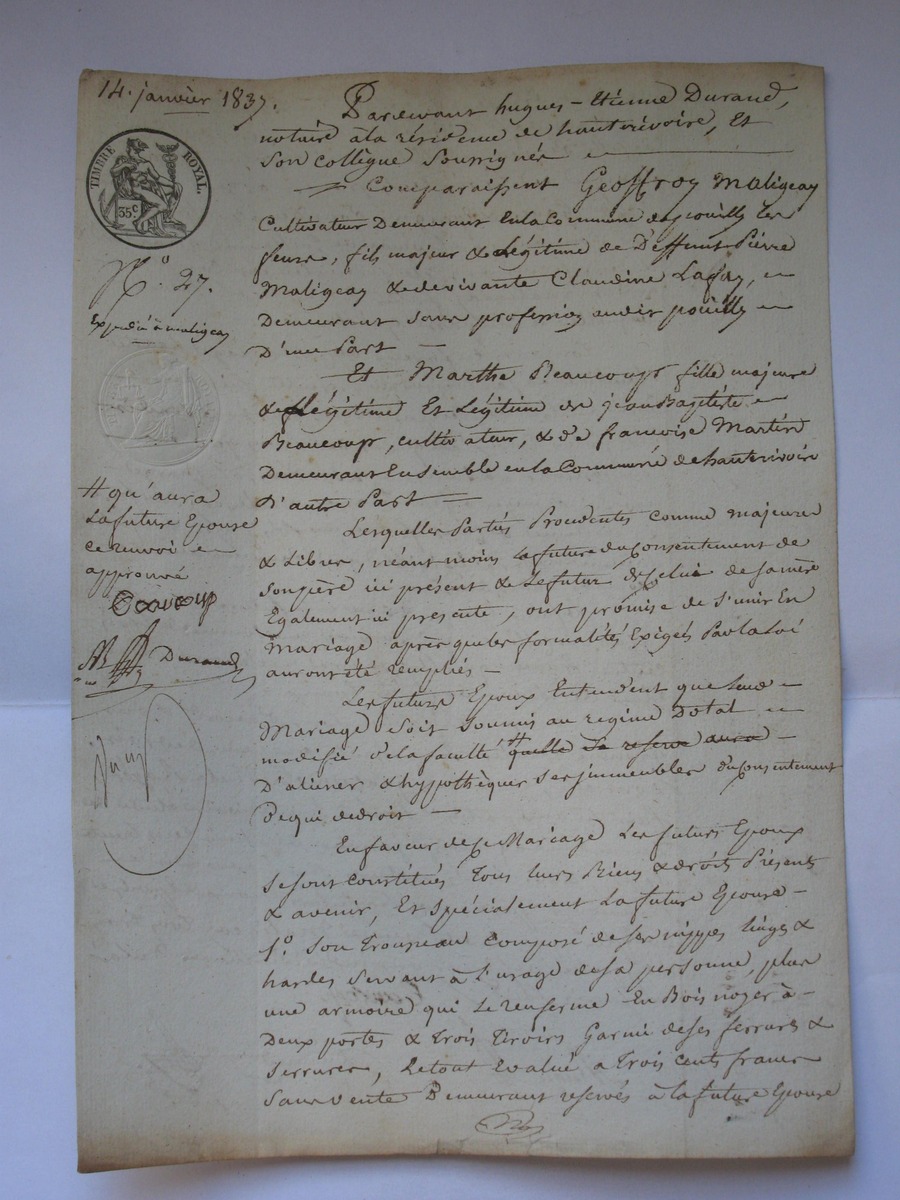 14. janvier 1837.
TIMBRE ROYAL.
35c
N.o 27.
Expédié à maligeay
# qu'aura
La future Epouse
ce renvoi en
approuvé
Beaucoup
Durand
Pardevant hugues - Etienne Durand,
notaire à la résidence de hauterivoire, Et
son collègue soussignés
Comparaissent Geoffroy Maligeay
Cultivateur Demeurant En la Commune de pouilly les
feurs, fils majeur & Légitime de Deffunt Pierre
Maligeay & de vivante Claudine Lafay,
Demeurant sans profession audit pouilly
D'une Part
Et Marthe Beaucoup fille majeure
& Légitime Et Légitime de jean Baptiste
Beaucoup, cultivateur, & de francoise Martin
Demeurant Ensemble en la Commune de hauterivoir
D'autre Part
Lesquelles Parties Procedentes comme majeures
& Libres, néant moins la future du Consentement de
son père ici présent & Le futur de Celui de sa mère
Egalement ici presente, ont promise de s'unir En
Mariage après que les formalités Exigés Par la Loi
auront été remplies
Les futurs Epoux Entendent que leur
Mariage soit soumis au regime Dotal
modifié de la faculté # quelle se reserve aura
D'aliener & hypothèquer ses immeubles du Consentement
De qui de droit
En faveur de Ce Mariage Les futurs Epoux
se sont Constitués Tous leurs Biens & droits Présents
& avenir, Et spécialement La future Epouse
1o. son Trousseau Composé de ses nippes linges &
hardes servant à L'usage de sa personne, plus
une armoire qui Le renferme En Bois noyer à
Deux portes & trois Tiroirs Garni de ses ferrures &
serrures, Le tout Evalué a Trois Cents francs
sans vente Demeurant reservés à La future Epouse